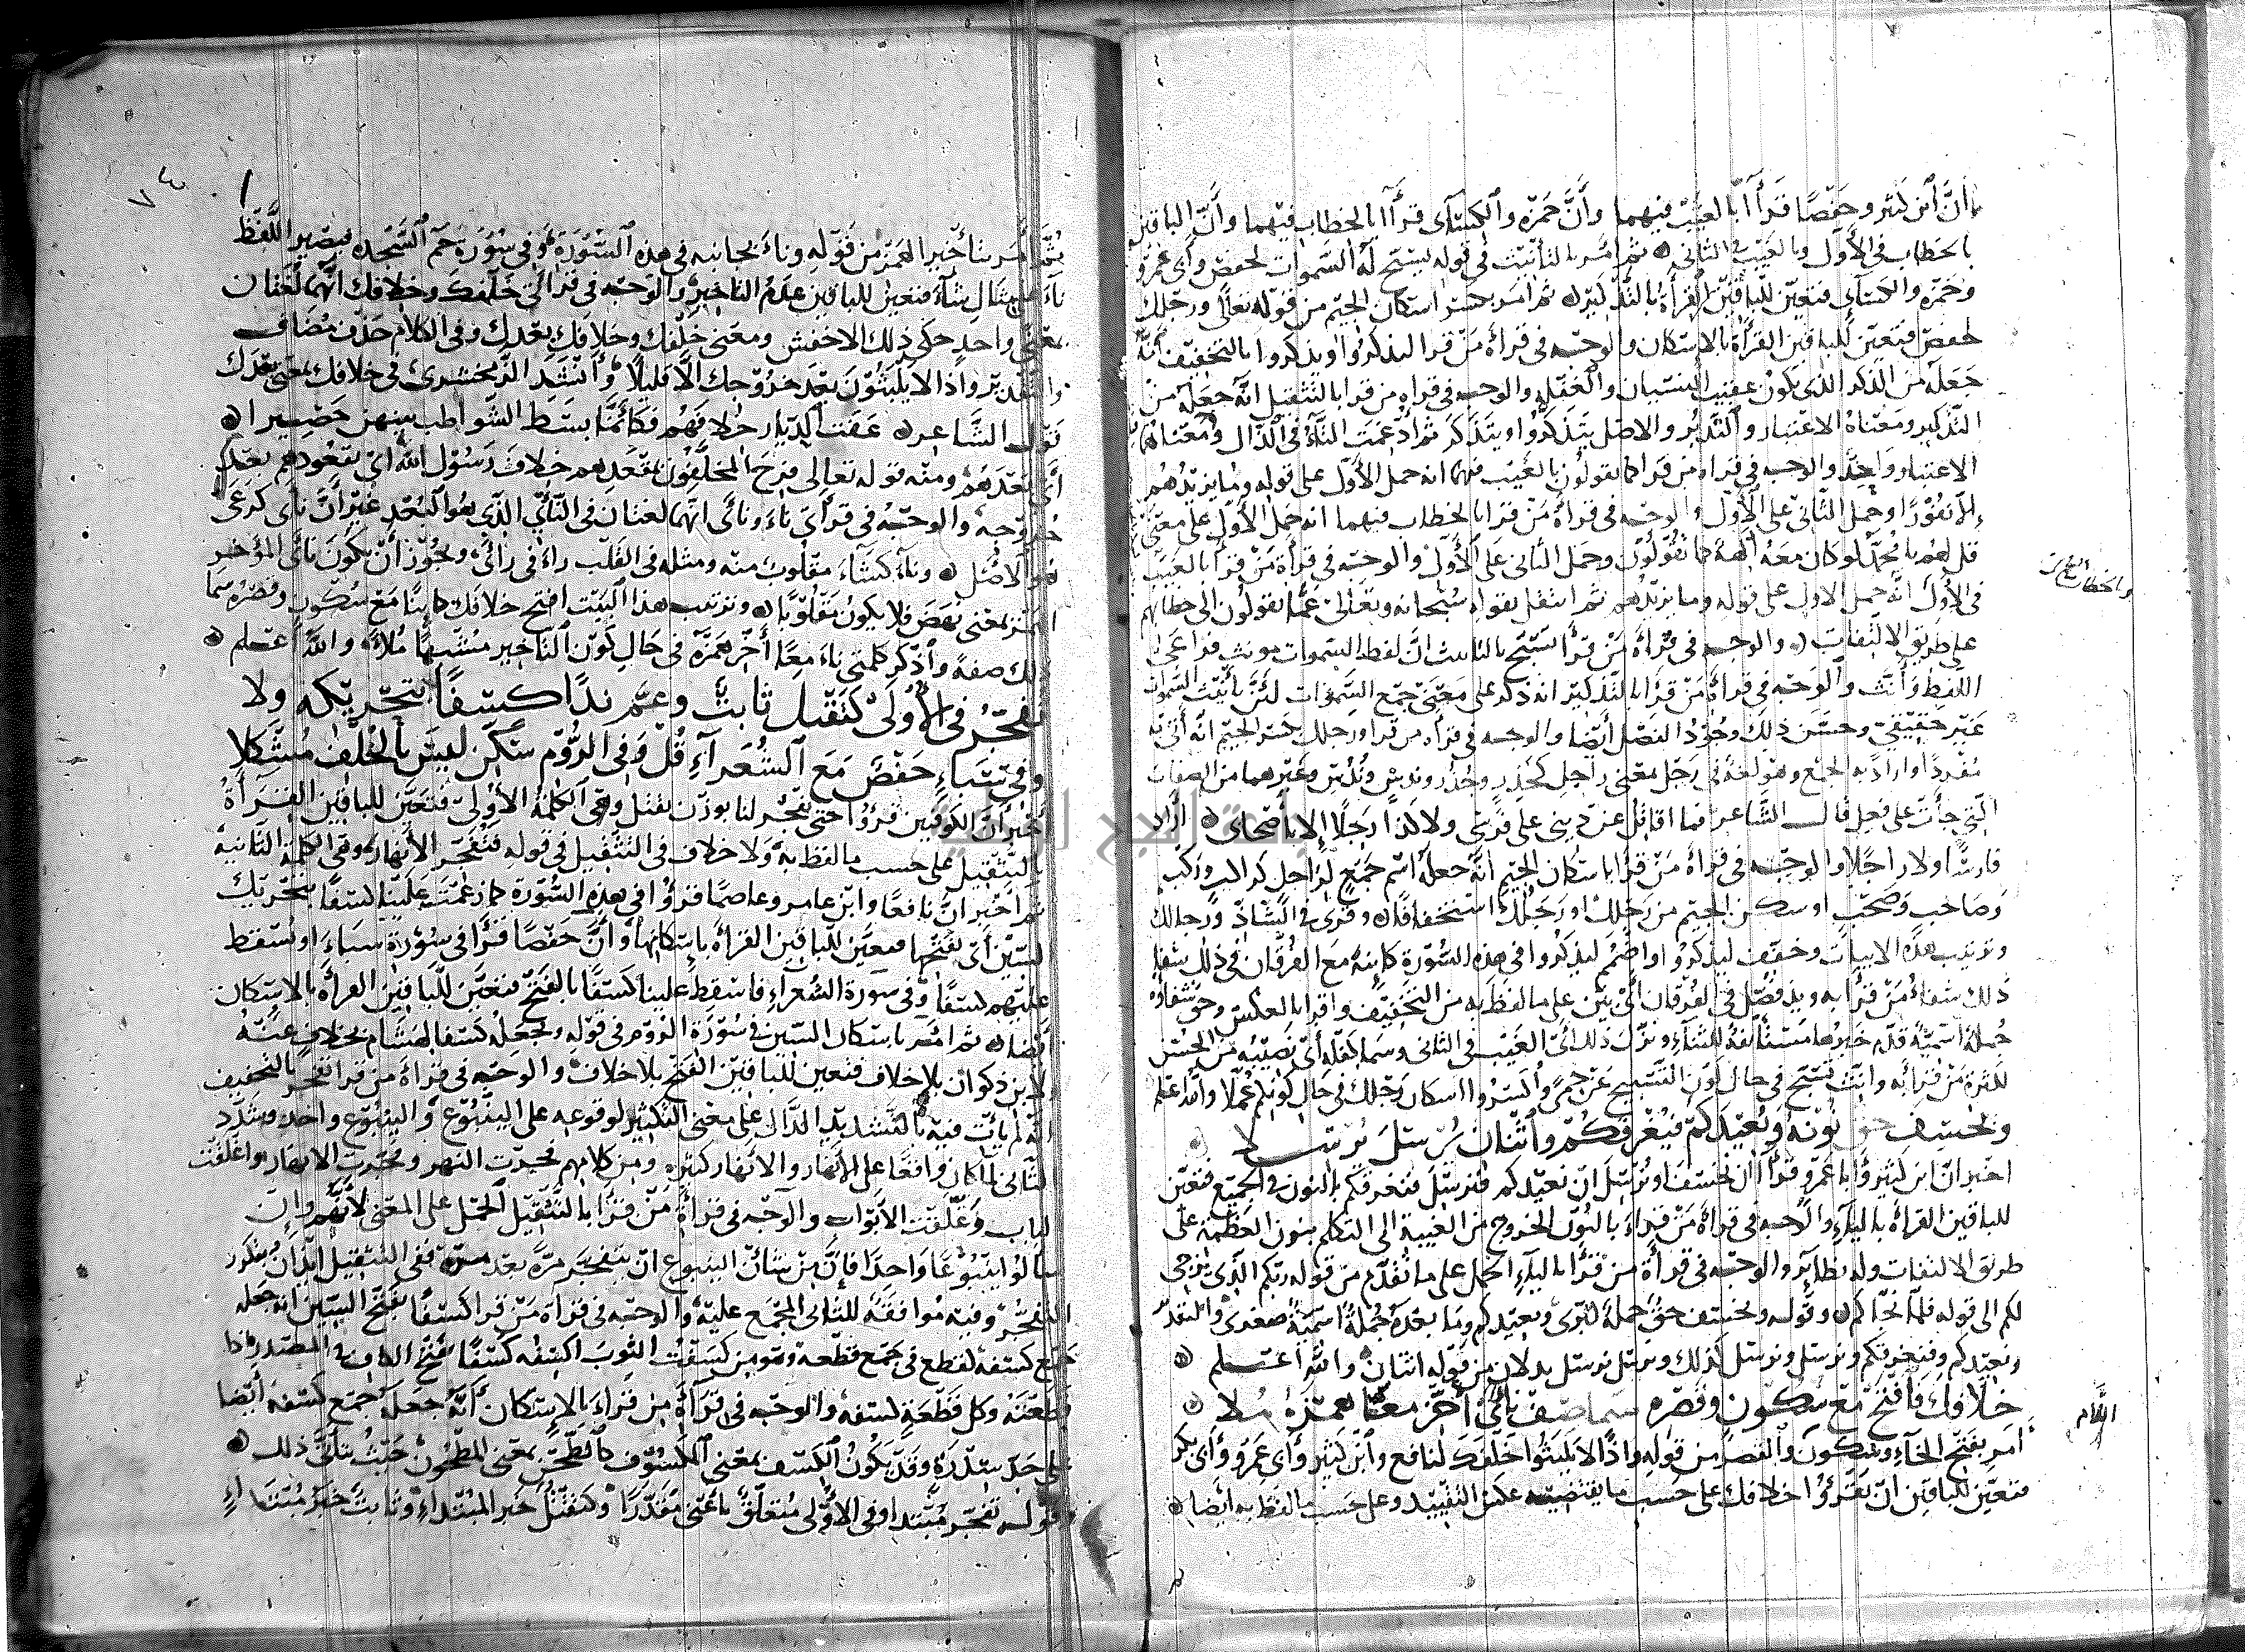 انّ ابن كثير وحفصًا قرأا بالغيب فيهما وأنّ حمزة والكسآى قرأا بالخطاب فيهما وأنّ الباقين
بالخطاب فى الأوّل وبالغيب فى الثانى ثم امر بالتأنيث فى قوله يسبّح له السّموات لحفص وأبى عمرو
وحمزه والكسآى فتعيّن للباقين القرأة بالتذكير ثم امر بكسر اسكان الجيم من قوله تعالى ورجلك
لحفص فتعيّن للباقين القرأة بالاسكان والوجه فى قرأة من قرا ليذكروا او يذكروا بالتخفيف أنّه
جعله من الذكر الذى يكون عقيب النسيان والغفله والوجه فى قراه من قرا بالتثقيل انّه جعله من
التذكير ومعناه الاعتبار والتدبر والاصل يتذكروا او يتذكر ثم ادغمت التآء فى الذال ومعناهما
الاعتبار واحدٌ والوجه فى قراه من قرا كما يقولون بالغيب فيهما انه حمل الأوّل على قوله وما يزيدهم
إلّا نفورًا وحمل الثّانى على الأوّل والوجه فى قراة من قرا بالخطاب فيهما انه حمل الأوّل على معنى
قل لهم يا محمّد لو كان معه آلهةً كما تقولون وحمل الثانى على الأوّل والوجه فى قرأة من قرأ بالغيب
والخطاب
فى الأوّل انّه حمل الاول على قوله وما يزيدهم ثم انتقل بقوله سبحانه وتعالى عمّا تقولون الى خطابهم
على طريق الالتفات والوجه فى قرأة من قرأ تسبّح بالتانيث انّ لفظ السّموات مونث فراعى
اللفظ وأنّث والوجه فى قرأة من قرأ بالتذكير انه ذكّر على معنى جمع السّموات لأنّ تأنيث السموات
غير حقيقى وحسّن ذلك وجود الفصل أيضا والوجه فى قراه من قرا ورجلك بكسر الجيم انّه أتى به
مفردًا واراد به الجمع وهو لغة فى رجل بمعنى راجل كحذر وحذُر وندس وندُس وغيرهما من الصفات
الّتى جأت على فعل قال الشّاعر فما اقاتل عن دينى على فرسى ولا كذا رجلًا إلا بأصحاى اراد
فارسًا ولا راجلًا والوجه فى قراة من قرأ باسكان الجيم انّه جعله اسم جمع لراجل كراكب وركب
وصاحب وصحب او سكن الجيم من رجِلك او رجُلك استخفافًا وقرى فى الشّاذ ورجالك
وترتيب هذه الابيات وخفّف ليذكروا واضمم ليذكروا فى هذه السّورة كاينة مع الفرقان فى ذلك شفا
ذلك شفاء من قرأ به ويذ فصّل فى الفرقان أى بيّن على ما لفظ به من التخفيف واقرا بالعكس وحق شفاؤه
جملةً اسميّة قدّم خبرها مستأنفة للثناء ونزّل ذلك أى الغيب فى الثانى وسما كفله أى نصيبه من الحسن
لكثرة من قرأ به وانّث تسبّح فى حال كون التسبيح عن حمى واكسروا اسكان رجلك فى حال كونكم عملا والله اعلم
ويخسف حق نونه ويعيدكم فيغرقكم واثنان يرسل يرسلا
اخبر انّ ابن كثير وأبا عمرو قرأا ان نخسف او نرسل ان نعيدكم فنرسل فنغرقكم بالنون فى الجميع فتعيّن
للباقين القرأة باليآء والوجه فى قرأة من قراء بالنون الخروج من الغيبة الى التكلم بنون العظمة على
طريق الالتفات وله نظاير والوجه فى قرأة من قرأ باليآء الحمل على ما تقدّم من قوله ربّكم الّذى يزجى
لكم الى قوله فلمّا نجّاكم وقوله ويخسف حق جملة كبرى ويعيدكم وما بعده جملةً اسميّة صغرى والتقدير
ونعيدكم وفنغرقكم ونرسل ونرسل كذلك ونرسل نرسل بدلان من قوله اثنان والله اعلم
خلافك فافتح مع سكون وقصره سما صف نأى أخّر معًا همزه ملا
امر بفتح الخآء وسكون والقصر من قوله واذًا لا يلبثوا خلفك لنافع وابن كثير وأبى عمرو وأبى بكر
اللام
فتعيّن للباقين ان يقرؤا خلافك على حسب ما يقتضيه عكس التقييد وعلى حسب ما لفظ به ايضا
٧٤
ثمّ أمر بتأخير الهمز من قوله وناء بجانبه فى هذه السّورة وفى سورة حم السّجده فيصير اللّفظ
ناء على مثال شآء فتعيّن للباقين عدم التاخير والوجه فى قرأتى خلفك وخلافك انّهما لغتان
بمعنى واحد حكى ذلك الاخفش ومعنى خلفك وخلافك بعدك وفى الكلام حذف مضاف
والتقدير واذًا لا يلبثون بعد خروجك الّا قليلًا وأنشد الزمخشرى فى خلافك بمعنى بعدك
قول الشّاعر عفت الديار خلافهم فكأنّما بسط الشّواطب بينهن حصيرا
أى بعدهم ومنه قوله تعالى فرح المخلّفون بمقعدهم خلاف رسول الله أى بقعودهم بعد
خروجه والوجه فى قرأتى ناء ونأى انّهما لغتان فى النّأى الّذى هو البعد غير أنّ نأى كرعى
هو الأصل وناء كشآء مقلوب منه ومثله فى القلب راء فى رأى ويجوز أن يكون نأى المؤخر
الهمز بمعنى نهض فلا يكون مقلوبًا وترتيب هذا البيت افتح خلافك كاينًا مع سكون وقصره سما
ذلك صفةً واذكر كلمتى ناء معًا أخّر همزه فى حال كون التاخير مشبهًا ملاء والله اعلم
تفجّر فى الأولى كتقتل ثابت وعمّ ندًا كسفًا بتحريكه ولا
وفى سباء حفص مع الشّعرآء قل وفى الرّوم سكّن ليس بالخلف مشكلا
أخبر أنّ الكوفيين قرؤا حتى تفجر لنا بوزن تقتل وهى الكلمة الأولى فتعيّن للباقين القرأة
بالتّثقيل على حسب ما لفظ به ولا خلاف فى التثقيل فى قوله فتفجّر الأنهار وهى الكلمة الثانية
ثم اخبر انّ نافعًا وابن عامر وعاصمًا قرؤا فى هذه السّورة كما زعمت علينا كسفًا بتحريك
السّين أى بفتحها فتعيّن للباقين القرأة باسكانها وأنّ حفصًا قرأ فى سورة سباء او نسقط
عليهم كسفًا وفى سورة الشعراء فاسقط علينا كسفًا بالفتح فتعيّن للباقين القرأة بالاسكان
ايضا ثم امر باسكان السّين فى سورة الرّوم فى قوله ويجعله كسفا لهشام بخلاف عنه
ولابن ذكوان بلا خلاف فتعين للباقين الفتح بلا خلاف والوجه فى قرأة من قرا تفجر بالتخفيف
انّه لم يأت فيه بالتّشديد الدّال على معنى التكثير لوقوعه على الينبوع والينبوع واحد وشدّد
الثّانى لما كان واقعًا على الأنهار والأنهار كثيره ومن كلامهم فجرت النهر وفجّرت الانهار واغلقت
الباب وغلّقت الأبواب والوجه فى قرأة من قرأ بالتّثقيل الحمل على المعنى لأنّهم وإن
سألوا ينبوعًا واحدًا فإنّ من شأن الينبوع ان يتفجر مرّة بعد مرّة ففى التثقيل ايذان بتكرر
التفجّر وفيه موافقة للثّانى المجمع عليه والوجه فى قرأة من قرا كسفًا بفتح السّين انه جعله
جمع كسفة كقطع فى جمع قطعة وهو من كسفت الثوب اكسفه كسفًا بفتح الكاف فى المصدر اذا
قطعته وكل قطعة كسفه والوجه فى قرأة من قراء بالإسكان أنّه جعله جمع كسفه أيضا
على حدّ سدره وقد يكون الكسف بمعنى المكسوف كالطّحن بمعنى المطحون حيث يتأتى ذلك
وقوله تفجّر مبتدا وفى الأولى متعلّق باعنى مقدّرًا وكتقتل خبر المبتداء وثابت خبر مبتداء